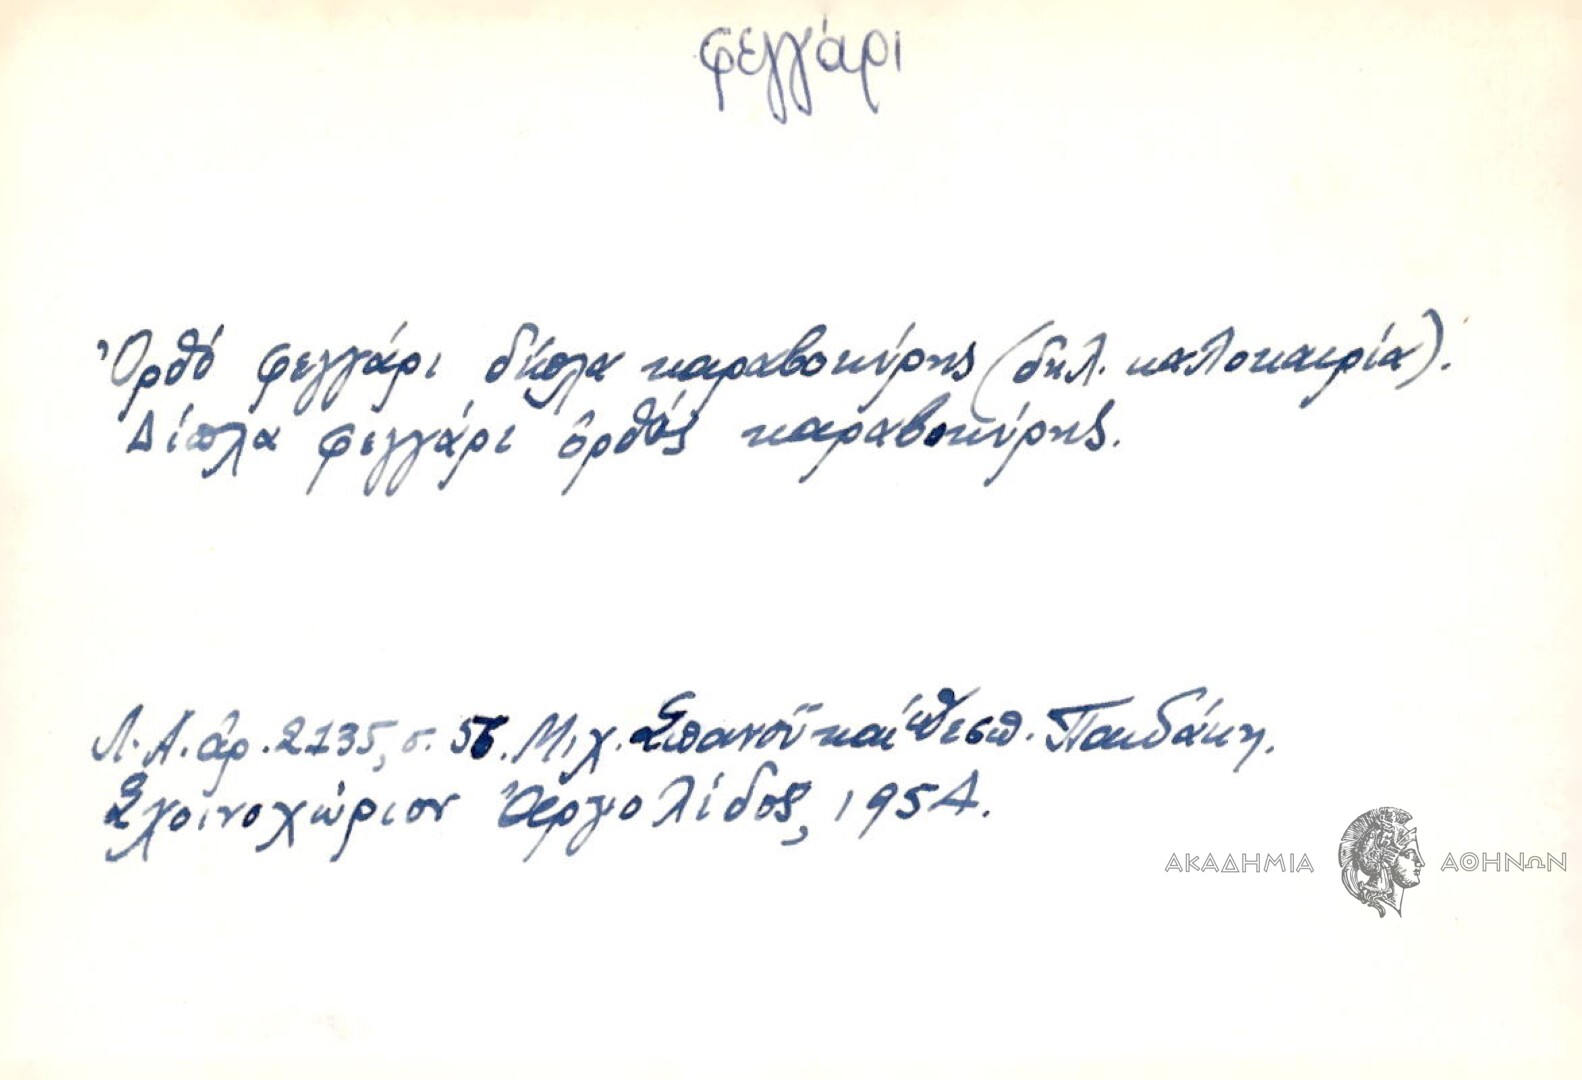 φεγγάρι
Ὀρθό φεγγάρι δίπλα καραβοκύρης (δηλ. καλοκαιρία).
Δίπλα φεγγάρι ὀρθός καραβοκύρης.
Λ.Α. ἀρ. 2135, σ. 56. Μιχ. Σπανοῦ καί Θεσπ. Παιδάκη.
Σχοινοχώριον Ἀργολίδος, 1954.
ΑΚΑΔΗΜΙΑ ΑΘΗΝΩΝ